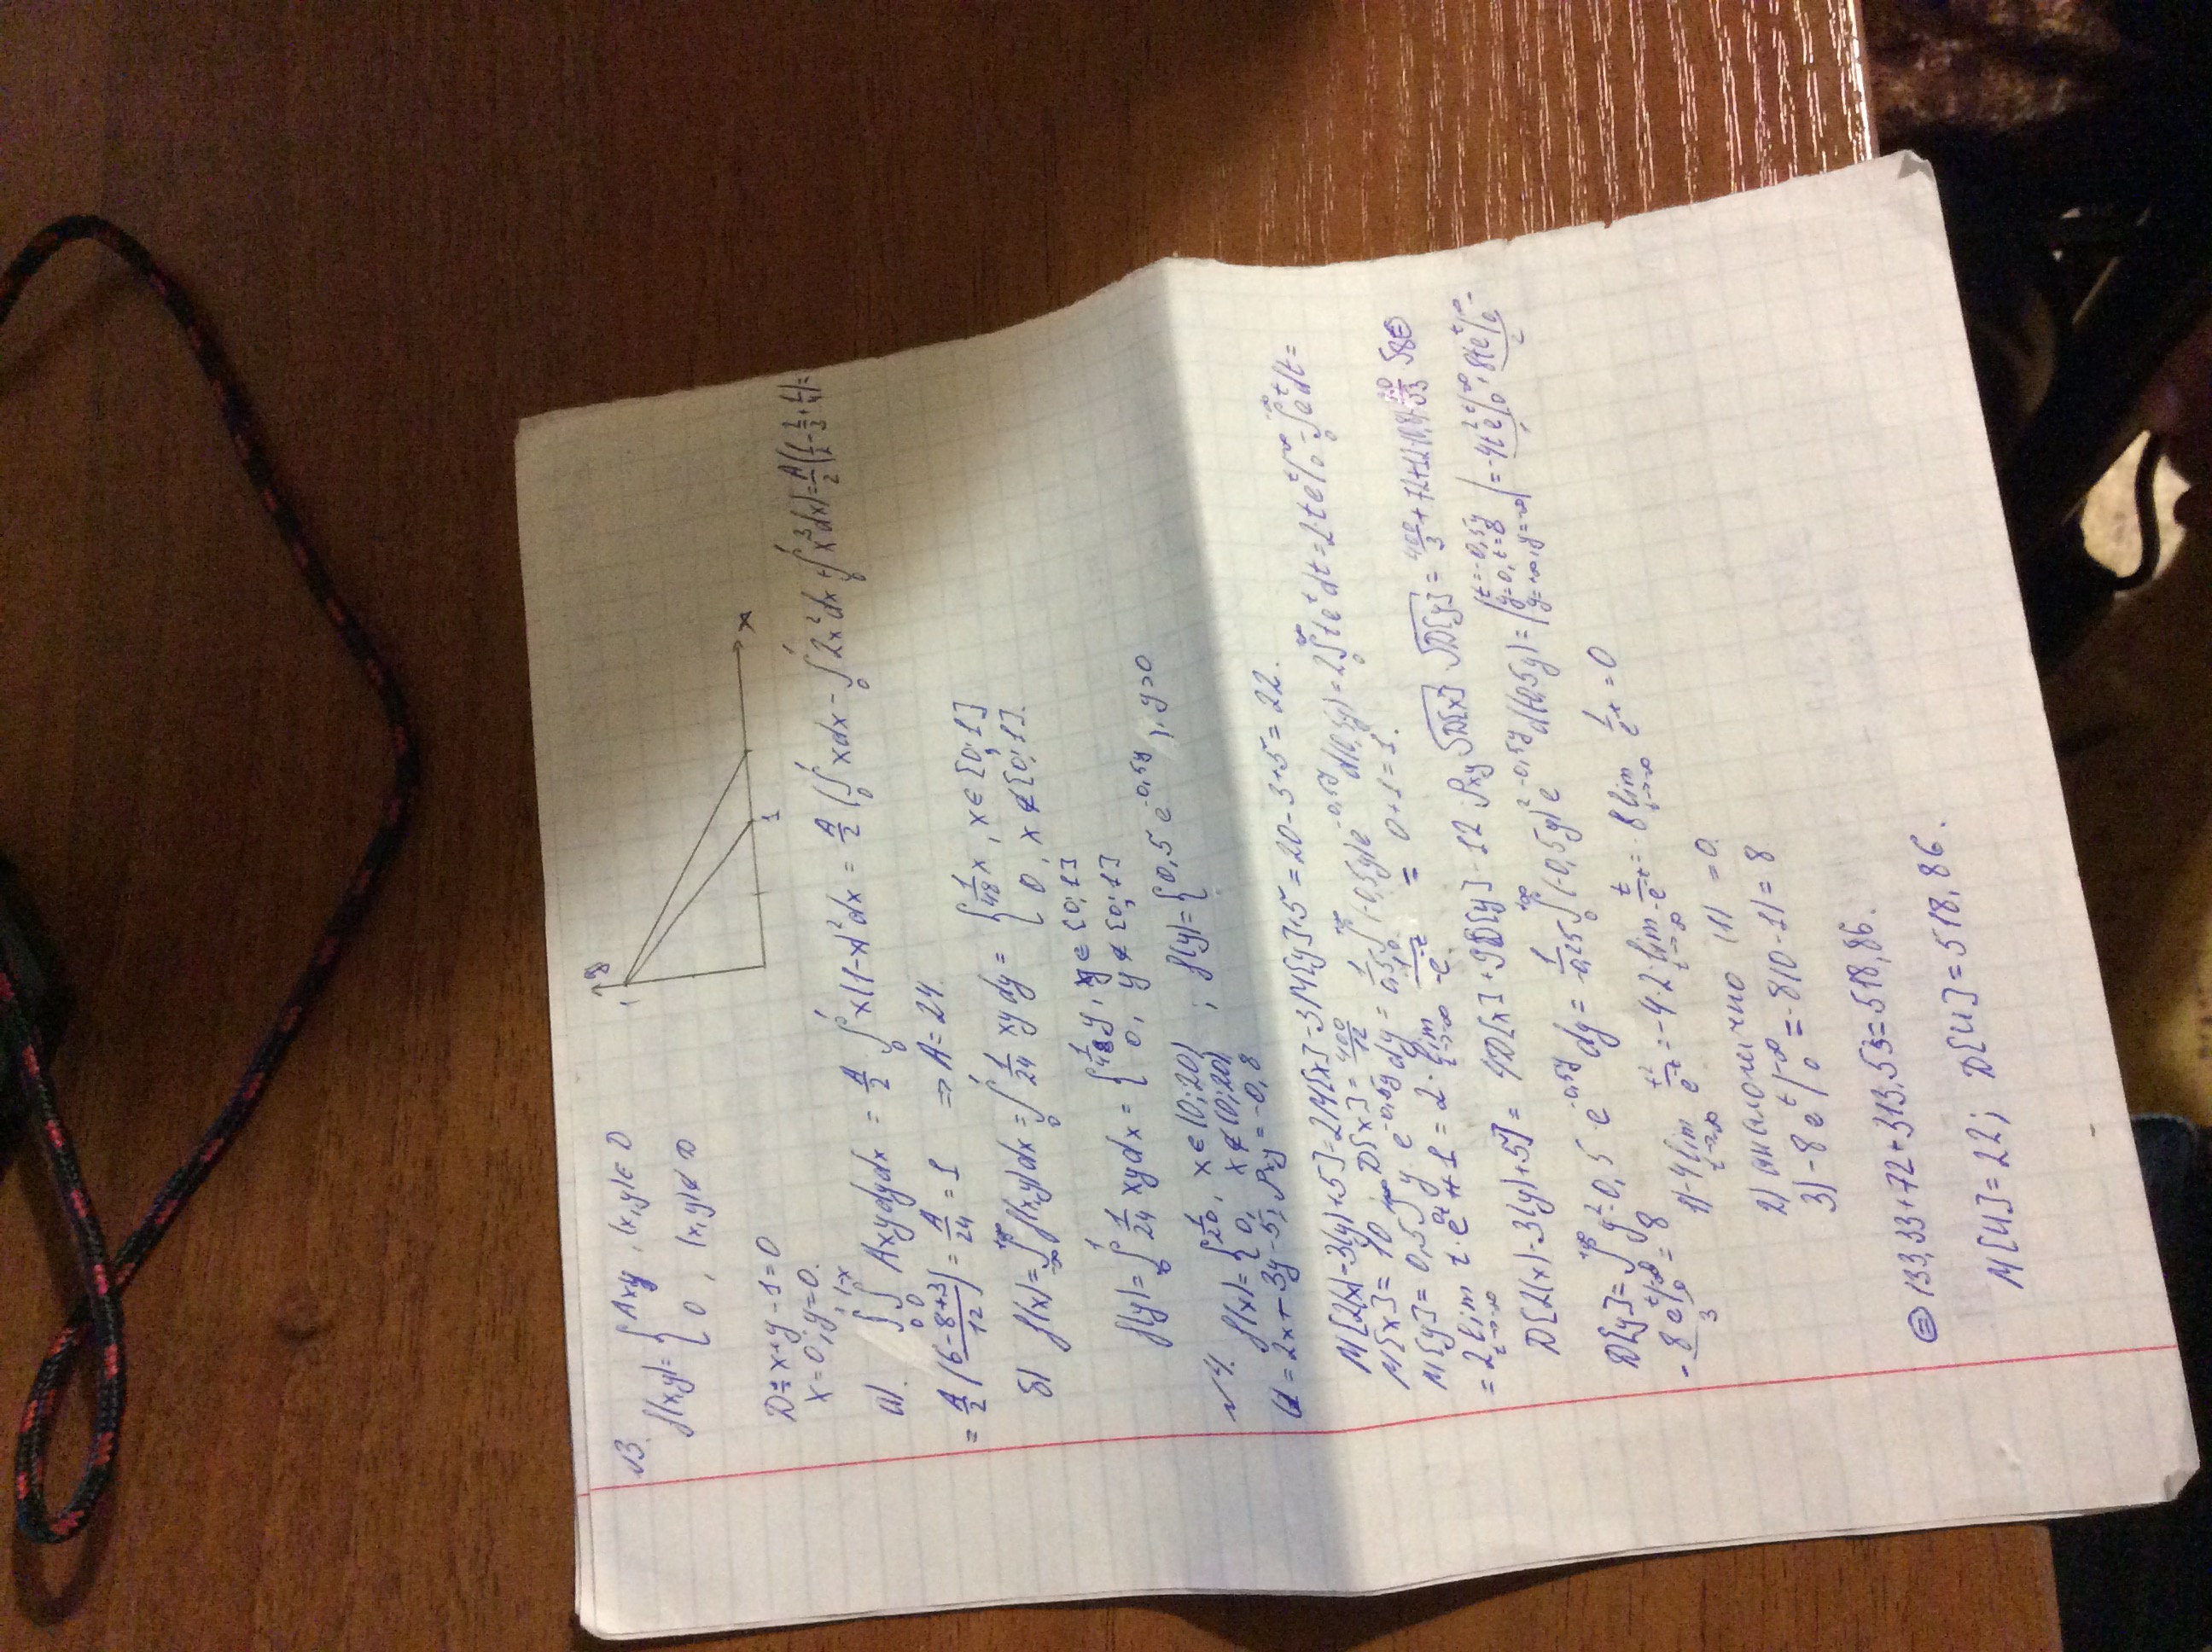 √3. f(x,y) = { Axy, (x,y) ∈ D
0, (x,y) ∉ D
y
1
1
x
D: x+y-1=0
x=0; y=0.
a). ∫₀¹ ∫₀^{1-x} Axy dy dx = A/2 ∫₀¹ x(1-x)² dx = A/2 (∫₀¹ x dx - ∫₀¹ 2x² dx + ∫₀¹ x³ dx) = A/2 (1/2 - 2/3 + 1/4) =
= A/2 (6-8+3)/12) = A/24 = 1 => A = 24.
б) f(x) = ∫_{-∞}^{+∞} f(x,y) dx = ∫₀¹ 1/24 xy dy = { 1/48 x, x ∈ [0; 1]
0, x ∉ [0; 1].
f(y) = ∫₀¹ 1/24 xy dx = { 1/48 y, y ∈ [0; 1]
0, y ∉ [0; 1]
√4. f(x) = { 1/20, x ∈ (0; 20)
0, x ∉ (0; 20) ; f(y) = { 0,5 e^{-0,5y}, y>0
U = 2x - 3y - 5; ρxy = -0,8
M[2(x) - 3(y) + 5] = 2M[x] - 3M[y] + 5 = 20 - 3 + 5 = 22.
M[x] = 10 D[x] = 400/12
M[y] = 0,5 ∫ y e^{-0,5y} dy = 1/0,5 ∫₀^{+∞} (-0,5y) e^{-0,5y} d(0,5y) = 2 ∫₀^{-∞} t e^t dt = 2 t e^t |₀^{-∞} - ∫₀^{-∞} e^t dt =
= 2 lim_{t→-∞} t · e^t + 1 = 2 · lim_{t→-∞} 1/-e^{-t} = 0+1 = 1.
D[2(x) - 3(y) + 5] = 4D[x] + 9D[y] - 12 · ρxy √D[x] √D[y] = 400/3 + 72 + 12 · 0,8 · 20/√3 √8 ⊜
D[y] = ∫₀^{+∞} y² · 0,5 · e^{-0,5y} dy = 1/-0,25 ∫₀^{+∞} (-0,5y)² e^{-0,5y} d(-0,5y) = | t = -0,5y
y = 0, t = 0
y = +∞, y = -∞ | = -4t² e^t |₀^{-∞} + 8t e^t |₀^{-∞} -
- 8 e^t |₀^{-∞} = 8
1) -4 lim_{t→-∞} t²/e^{-t} = -4 · 2 · lim_{t→-∞} t/-e^{-t} = -8 lim_{t→-∞} 1/e^{-t} = 0
2) аналогично (1) = 0.
3) -8 e^t |₀^{-∞} = -8(0-1) = 8
⊜ 133,33 + 72 + 313,53 = 518,86.
M[U] = 22; D[U] = 518,86.